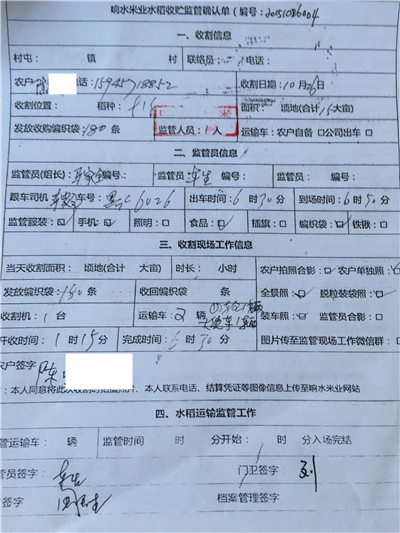 响水米业水稻收贮监管确认单(编号:20151026004
一、收割信息
村屯: 镇 村 联络员: 电话:
农户 电话:15945718852 收割日期:10月26日
收割位置: 稻种: 面积:(合计16大亩)
发放收购编织袋:180条 监管人员: 人 运输车:农户自备□公司出车□
二、监管员信息
监管员(组长) 编号: 监管员 编号: 监管员 编号:
跟车司机 车号:黑 6026 出车时间:6时30分 到场时间:6时50分
监管服装:☑ 手机:☑ 照明:□ 食品:☑ 插旗:□ 编织袋:☑ 铁锹:□
三、收割现场工作信息
当天收割面积: 顷地(合计 大亩) 时长: 小时 农户拍照合影:☑ 农户单独照:
发放编织袋:180条 收回编织袋: 条 全景照:☑ 脱粒装袋照:
收割机:1台 运输车:2辆 装车照:☑ 监管员合影:
开收时间:1时15分 完成时间:6时30分 图片传至监管现场工作微信群:
农户签字 陈
本人同意将此次收割 照片、本人联系电话、结算凭证等图像信息上传至响水米业网站
四、水稻运输监管工作
管运输车: 辆 监管时间: 时 分开始: 时 分入场完结
管员签字 门卫签字 刘
签字 档案管理签字